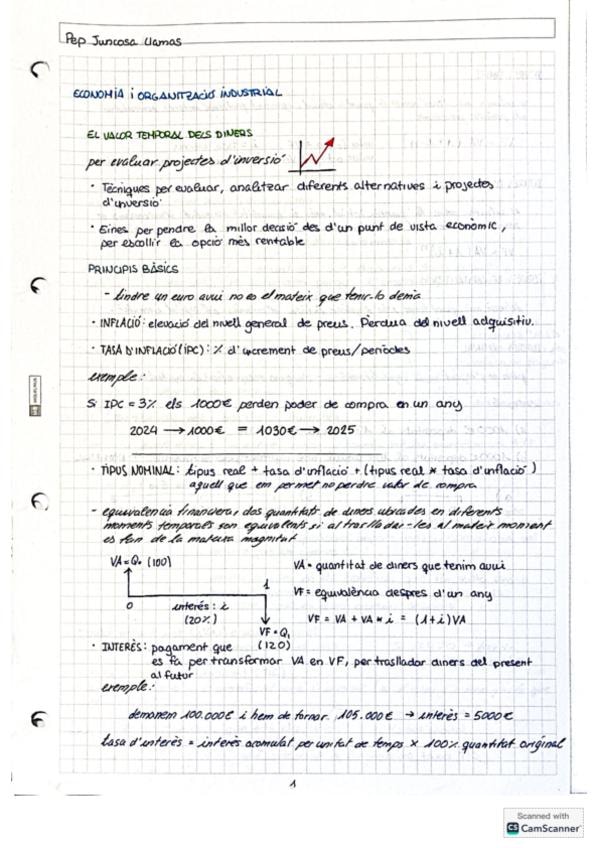 Pep Juncosa Llamas
ECONOMIA i ORGANITZACIÓ INDUSTRIAL
EL VALOR TEMPORAL DELS DINERS
per evaluar projectes d'inversió
• Tècniques per evaluar, analitzar diferents alternatives i projectes
d'inversió
• Eines per pendre la millor decisió des d'un punt de vista econòmic,
per escollir la opció més rentable
PRINCIPIS BÀSICS
- tindre un euro avui no es el mateix que tenir-lo demà
• INFLACIÓ: elevació del nivell general de preus. Pèrdua del nivell adquisitiu.
• TASA D'INFLACIÓ (IPC): % d'increment de preus/períodes
exemple:
Si IPC = 3% els 1000€ perden poder de compra en un any
2024 → 1000€ = 1030€ → 2025
• TIPUS NOMINAL: tipus real + tasa d'inflació + (tipus real * tasa d'inflació)
aquell que em permet no perdre valor de compra
- equivalencia financera: dos quantitats de diners ubicades en diferents
moments temporals son equivalents si al traslladar-les al mateix moment
es fan de la mateixa magnitut
VA = Q₀ (100)
VA = quantitat de diners que tenim avui
1
VF = equivalència despres d'un any
0
interés: i
(20%)
VF = VA + VA * i = (1+i)VA
VF = Q₁
(120)
• INTERÈS: pagament que
es fa per transformar VA en VF, per traslladar diners del present
al futur
exemple:
demanem 100.000€ i hem de tornar 105.000€ → interès = 5000€
tasa d'interès = interès acomulat per unitat de temps × 100% quantitat original
1
Scanned with
CS CamScanner